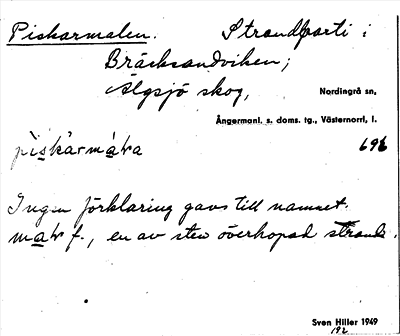 Piskarmalen. Strandparti i
Bräcksandviken;
Älgsjö skog,
Nordingrå sn,
Ångermanl. s. doms. tg., Västernorrl, l.
piskármáƚa 696
Ingen förklaring gavs till namnet.
maƚ f., en av sten överhopad strand.
Sven Hiller 1949
192